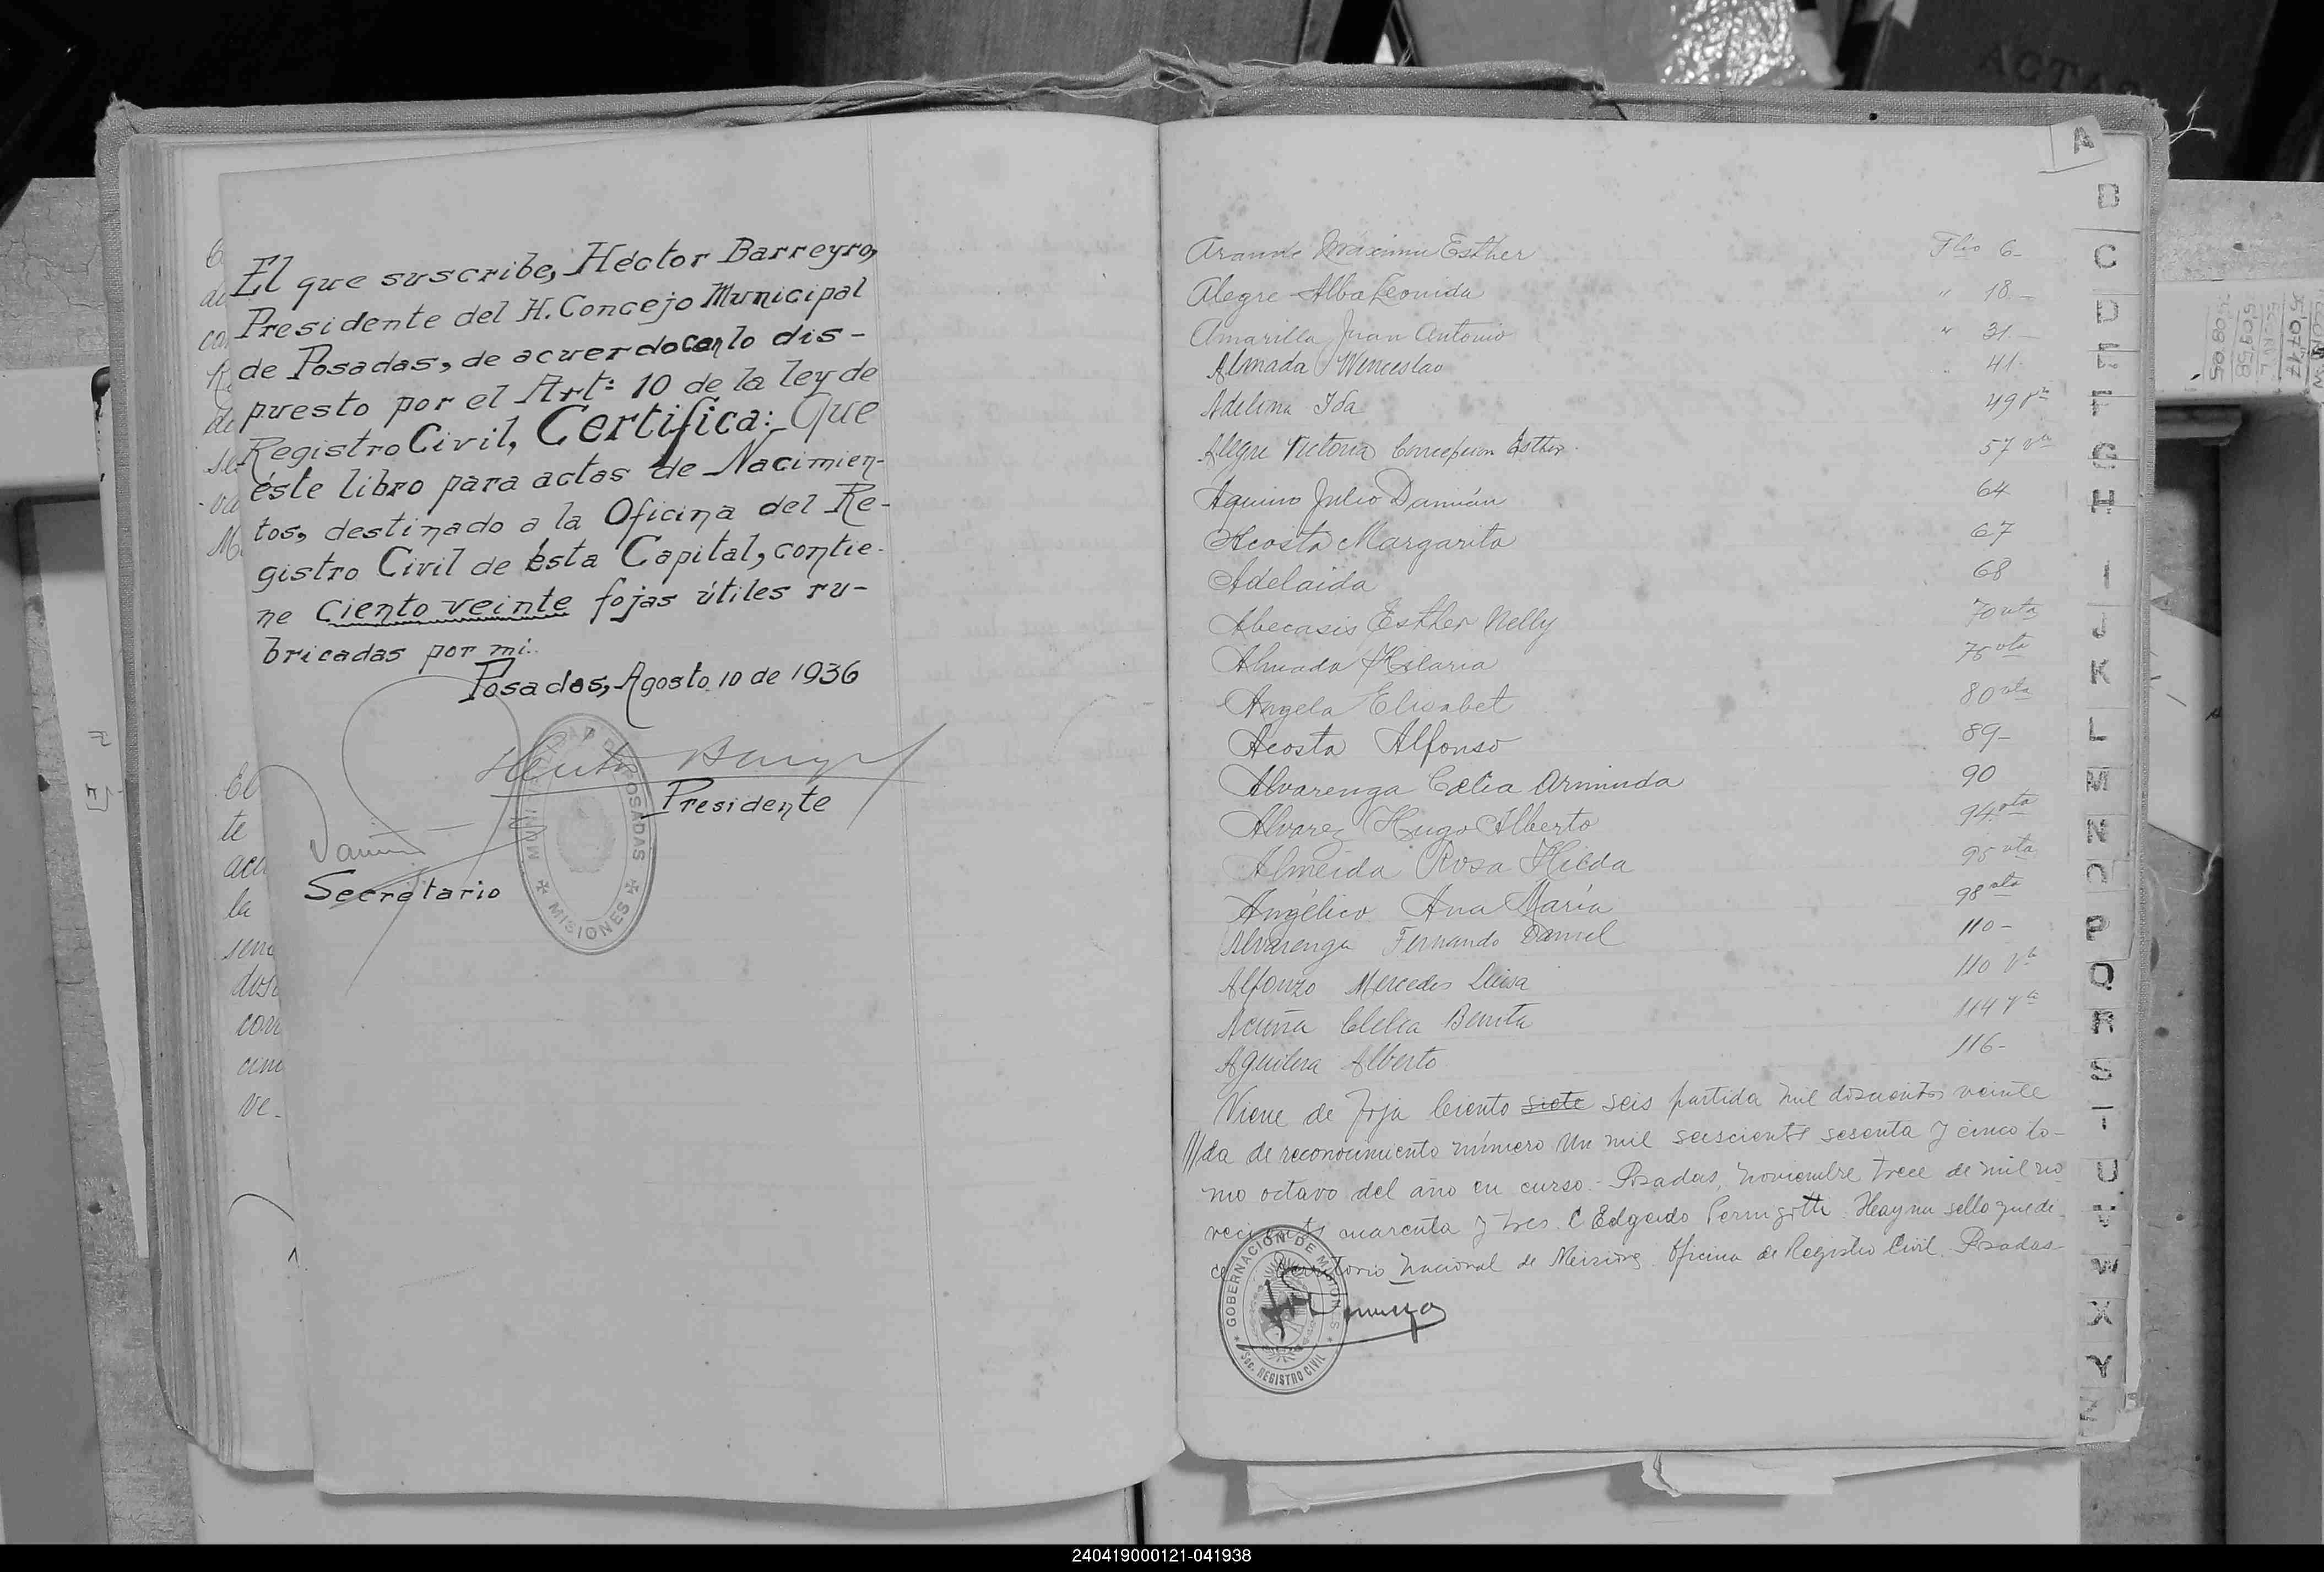 El que suscribe, Héctor Barreyro,
Presidente del H. Concejo Municipal
de Posadas, de acuerdo con lo dis-
puesto por el Art: 10 de la ley de
Registro Civil, Certifica: Que
éste libro para actas de Nacimien-
tos, destinado a la Oficina del Re-
gistro Civil de ésta Capital, contie-
ne ciento veinte fojas útiles ru-
bricadas por mi.
Posadas, Agosto 10 de 1936
Presidente
Secretario
MUNICIPALIDAD DE POSADAS
MISIONES
A
B
C
D
E
F
G
H
I
J
K
L
M
N
O
P
Q
R
S
T
U
V
W
X
Y
Z
Máxima Esther Flio 6-
Alegre Alba Leonida " 18-
Amarilla Juan Antonio " 31.-
Almada Wenceslao " 41.
Adelina Ida 49 vta
Alegre Victoria Concepcion Esther. 57 vta
Aquino Julio Damián 64
Acosta Margarita 67
Adelaida 68
Abecasis Esther Nelly 70 vta
Almada Hilaria 78 vta
Angela Elisabet 80 vta
Acosta Alfonso 89-
Alvarenga Celia Arminda 90
Alvarez Hugo Alberto 94 vta
Almeida Rosa Hilda 95 vta
Angélico Ana María 98 vta
Alvarenga Fernando Daniel 110-
Alfonzo Mercedes Luisa 110 vta
Acuña Clelia Benita 114 vta
Aguilera Alberto 116-
Viene de foja Ciento siete seis partida mil doscientos veinte
//da de reconocimiento número un mil seiscientos sesenta y cinco to-
mo octavo del año en curso.- Posadas, noviembre trece de mil no
vecientos cuarenta y tres. C Edgardo Hay un sello que di
ce Territorio Nacional de Misiones. Oficina de Registro Civil. Posadas-
GOBERNACION DE MISIONES
Sec. REGISTRO CIVIL
ACTAS
240419000121-041938